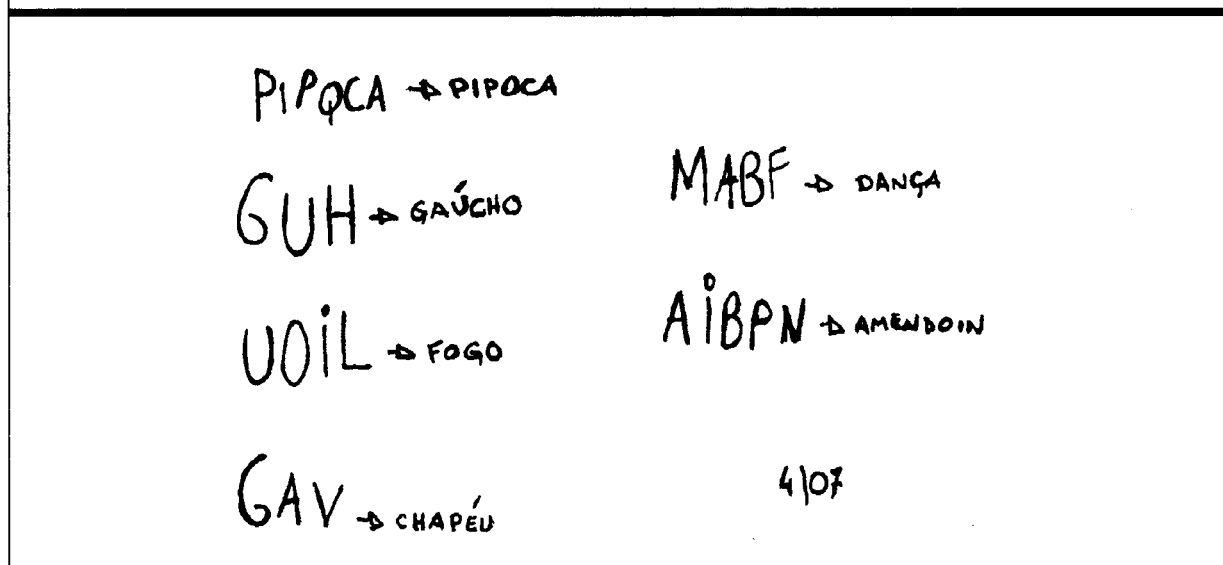 PIPOCA → PIPOCA
GUH → GAÚCHO
UOIL → FOGO
GAV → CHAPÉU
MABF → DANÇA
AIBPN → AMENDOIN
4/07